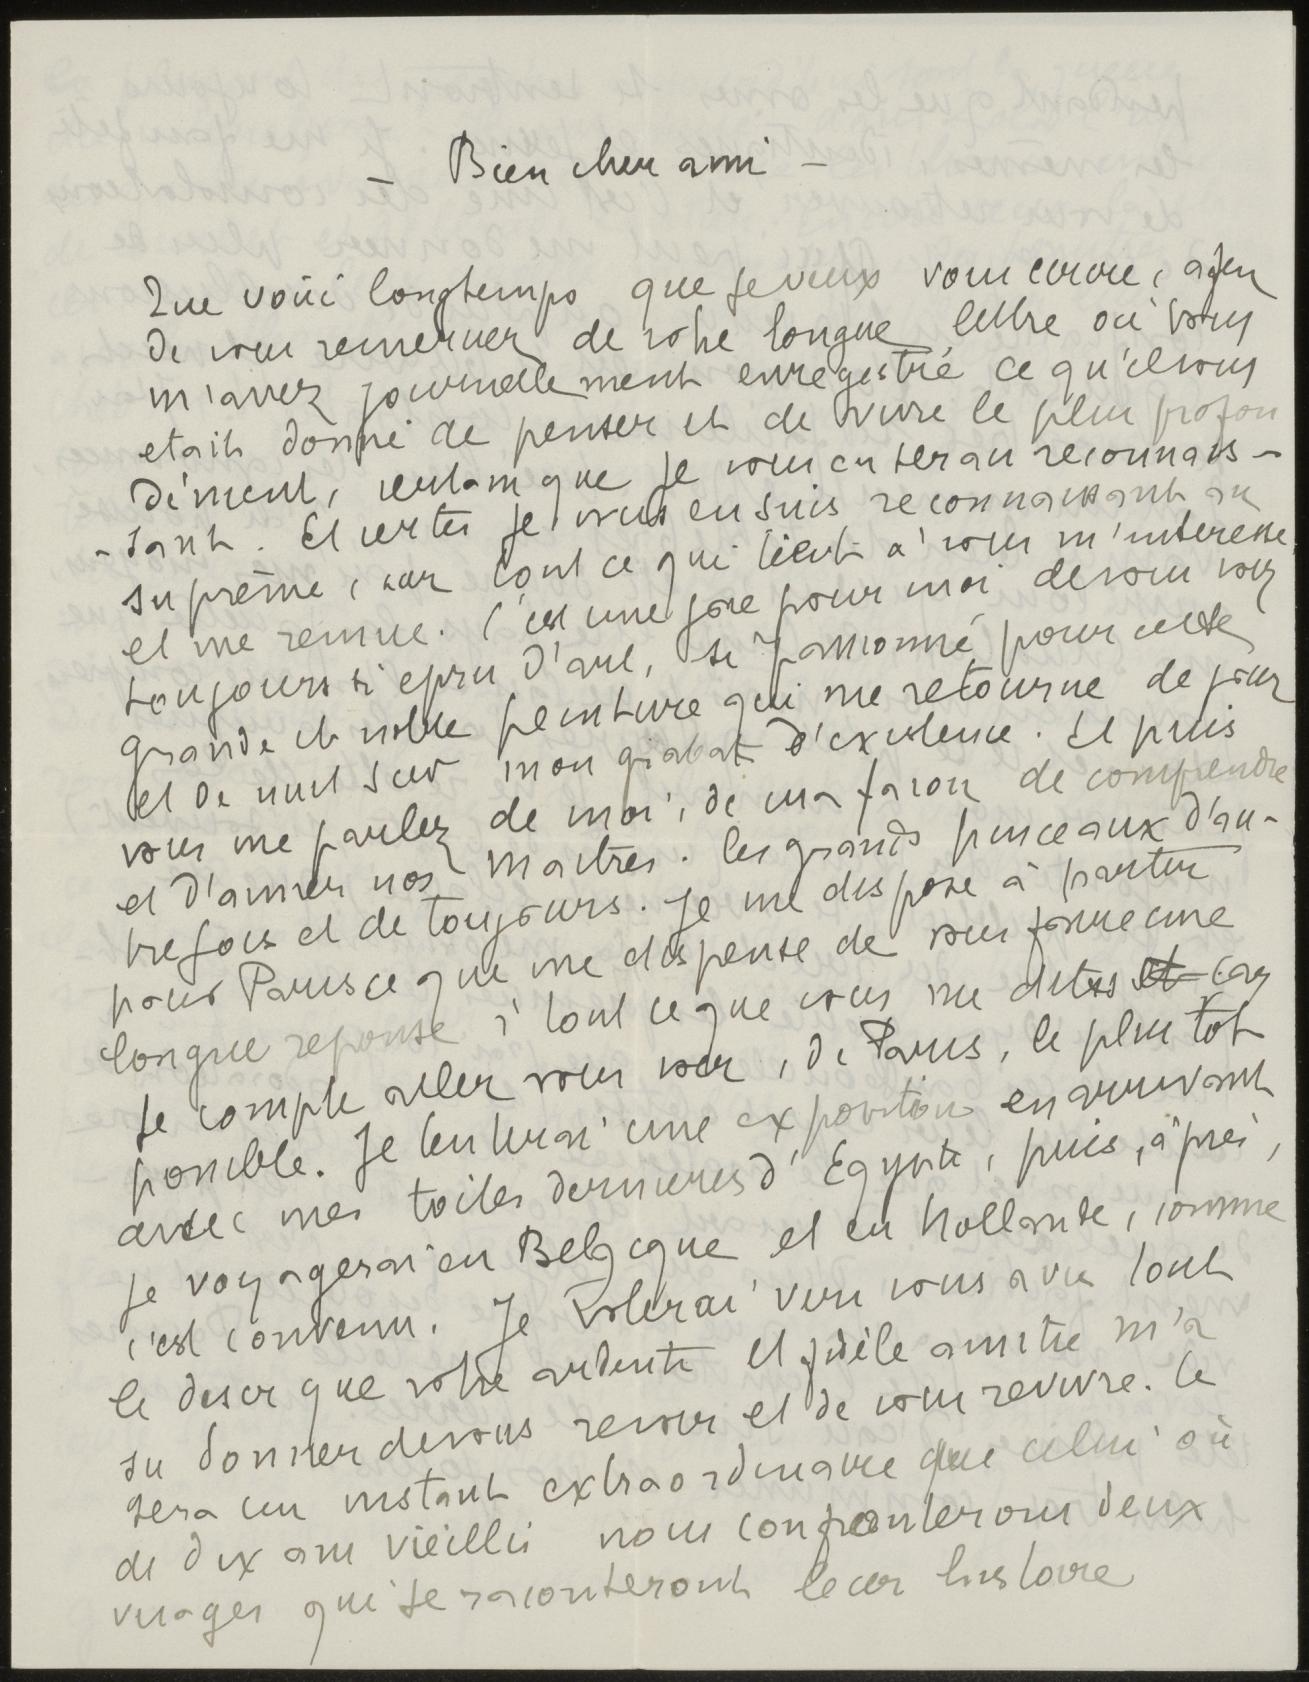 - Bien cher ami -
Que voici longtemps que je veux vous écrire, afin
de vous remercier de votre longue lettre où vous
m'avez journellement enregistré ce qu'il vous
etait donné de penser et de vivre le plus profon
dément, certain que je vous en serai reconnais-
-sant. Et certes je vous en suis reconnaissant au
suprême, car tout ce qui tient à vous m'interesse
et me remue. C'est une joie pour moi de vous voir
toujours si epris d'art, si passionné pour cette
grande et noble peinture qui me retourne de jour
et de nuit sur mon grabat d'existence. Et puis
vous me parlez de moi, de ma facon de comprendre
et d'aimer nos maitres. les grands pinceaux d'au-
trefois et de toujours. Je me dispose à partir
pour Paris ce que me dispense de vous faire une
longue reponse à tout ce que vous me dites et car
je compte aller vous voir, de Paris, le plus tôt
possible. Je tenterai une exposition en arrivant
avec mes toiles dernieres d'Egypte, puis, après,
je voyagerai en Belgique et en Hollande, comme
c'est convenu. Je volerai vers vous avec tout
le desir que votre ardente et fidèle amitié m'a
su donner de vous revoir et de vous revivre. Ce
sera un instant extraordinaire que celui où
de dix ans vieillis nous confronterons deux
visages qui se raconteront leur histoire